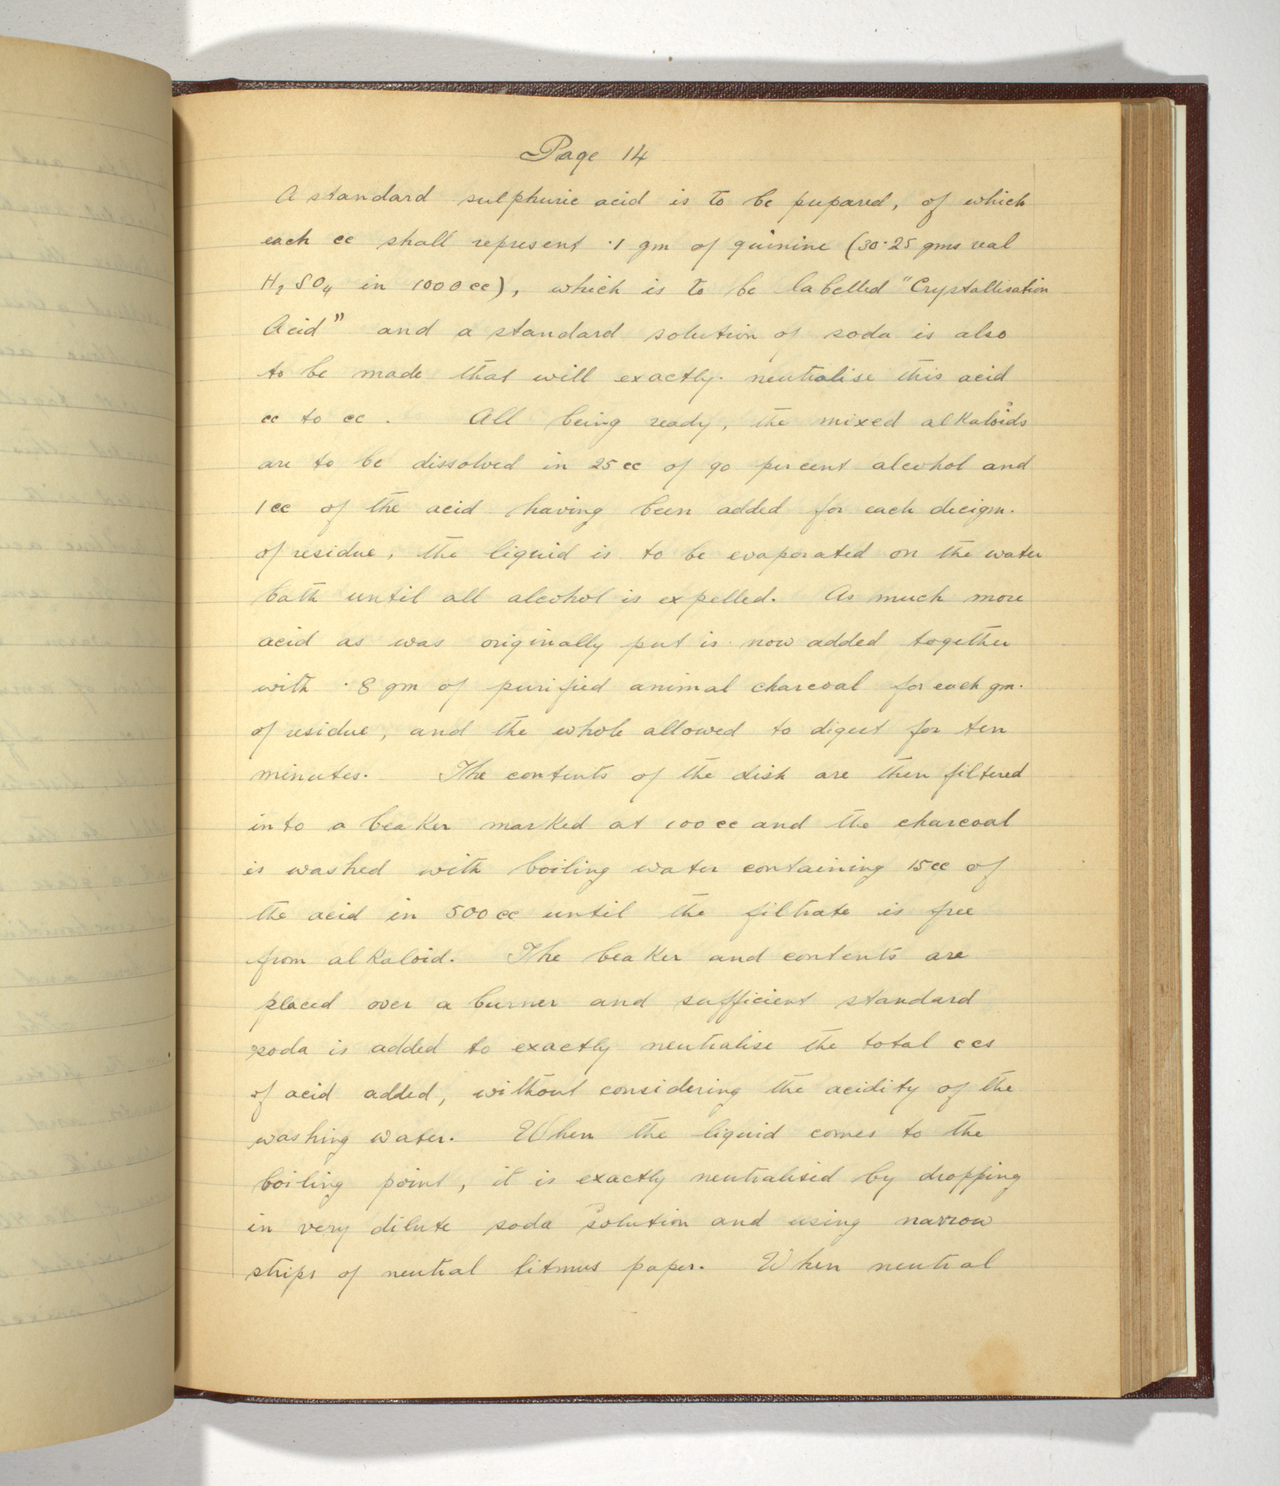 Page 14
A standard sulphuric acid is to be prepared, of which
each cc shall represent ·1 gm of quinine (30·25 gms real
H2SO4 in 1000cc), which is to be labelled "Crystallisation
Acid" and a standard solution of soda is also
to be made that will exactly neutralise this acid
cc to cc. All being ready, the mixed alkaloids
are to be dissolved in 25cc of 90 percent alcohol and
1cc of the acid having been added for each decigm.
of residue, the liquid is to be evaporated on the water
bath until all alcohol is expelled. As much more
acid as was originally put is now added together
with ·8 gm of purified animal charcoal for each gm.
of residue, and the whole allowed to digest for ten
minutes. The contents of the dish are then filtered
into a beaker marked at 100cc and the charcoal
is washed with boiling water containing 15cc of
the acid in 500cc until the filtrate is free
from alkaloid. The beaker and contents are
placed over a burner and sufficient standard
soda is added to exactly neutralise the total ccs
of acid added, without considering the acidity of the
washing water. When the liquid comes to the
boiling point, it is exactly neutralised by dropping
in very dilute soda solution and using narrow
strips of neutral litmus paper. When neutral